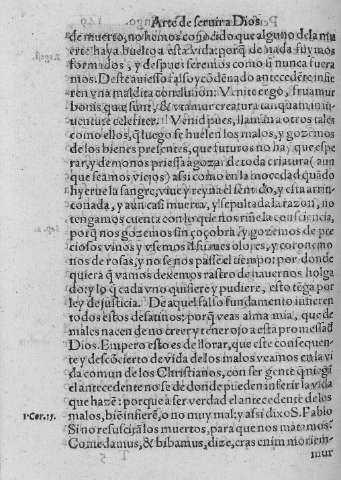 Arte de seruir a Dios
de muerto, no hemos conocido que alguno de la mu
erte haya buelto a esta vida: porq̃ de nada fuymos
formados, y despues seremos como si nunca fuera
mos. Deste auiesso falso y cõdenado antecedẽte infie
ren vna maldita conclusiõn: Venite ergo, fruamur
bonis quæ sunt, & vtamur creatura tanquam in iu
uentute celeriter. Venid pues, llamãn a otros tales
como ellos, q̃ luego se huelen los malos, y gozemos
de los bienes presentes, que futuros no hay que espe
rar, y demonos priessa a gozar de toda criatura (aun
que seamos viejos) assi como en la mocedad quãdo
hyerue la sangre, viue y reyna el sentido, y esta arrin
conada, y aun casi muerta, y sepultada la razon, no
tengamos cuenta con lo que nos riñe la consciencia,
porq̃ nos gozemos sin çoçobra, y gozemos de pre
ciosos vinos y vsemos d̃ suaues olores, y coronemo
nos de rosas, y no se nos passe el tiempo: por donde
quiera q̃ vamos dexemos rastro de hauernos holga
do: y lo q̃ cada vno quisiere y pudiere, esto tẽga por
ley de justicia. De aquel falso fundamento infieren
todos estos desatinos: porq̃ veas alma mia, que de
males nacen de no creer y tener ojo a esta promessa d̃
Dios. Empero esto es de llorar, que este consequen
te y descõcierto de vida de los malos veamos en la vi
da comun de los Christianos, con ser gente q̃ niega
el antecedente no se de donde pueden inferir la vida
que hazẽ: porque a ser verdad el antecedente de los
1·Cor.15.
malos, biẽ infierẽ, o no muy mal: y assi dixo S. Pablo
Si no resuscitã los muertos, para que nos matamos?
Comedamus, & bibamus, dize, cras enim moriem-
mur